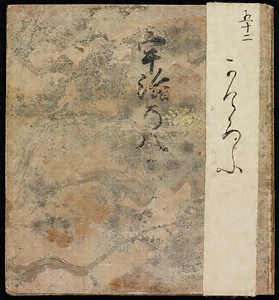 五十二
かけろふ
宇治乃八